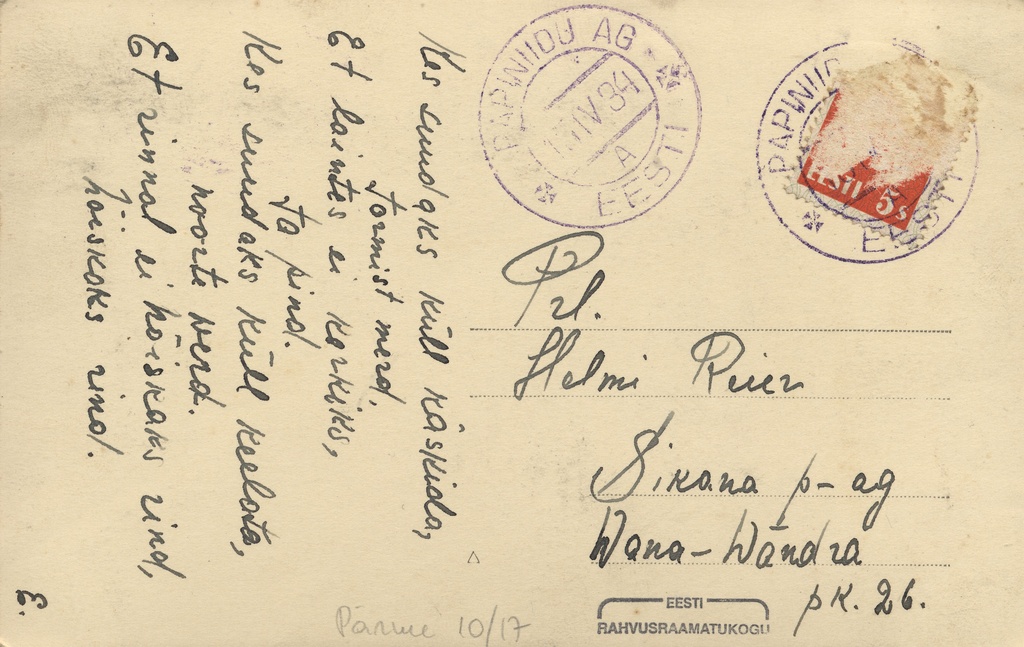 Kes suudaks küll käskida,
tormist merd,
Et laintes ei kerkiks,
ta pind.
Kes suudaks küll keelata,
noorte werd.
Et rinnal ei hõiskaks rind,
hõiskaks rind.
E.
PAPINIIDU AG
IV 34
A
EESTI
PAPINIID
EESTI
EESTI 5s
Prl.
Helmi Reier
Sikana p-ag
Wana-Wändra
pk. 26.
Pärnu 10/17
EESTI
RAHVUSRAAMATUKOGU